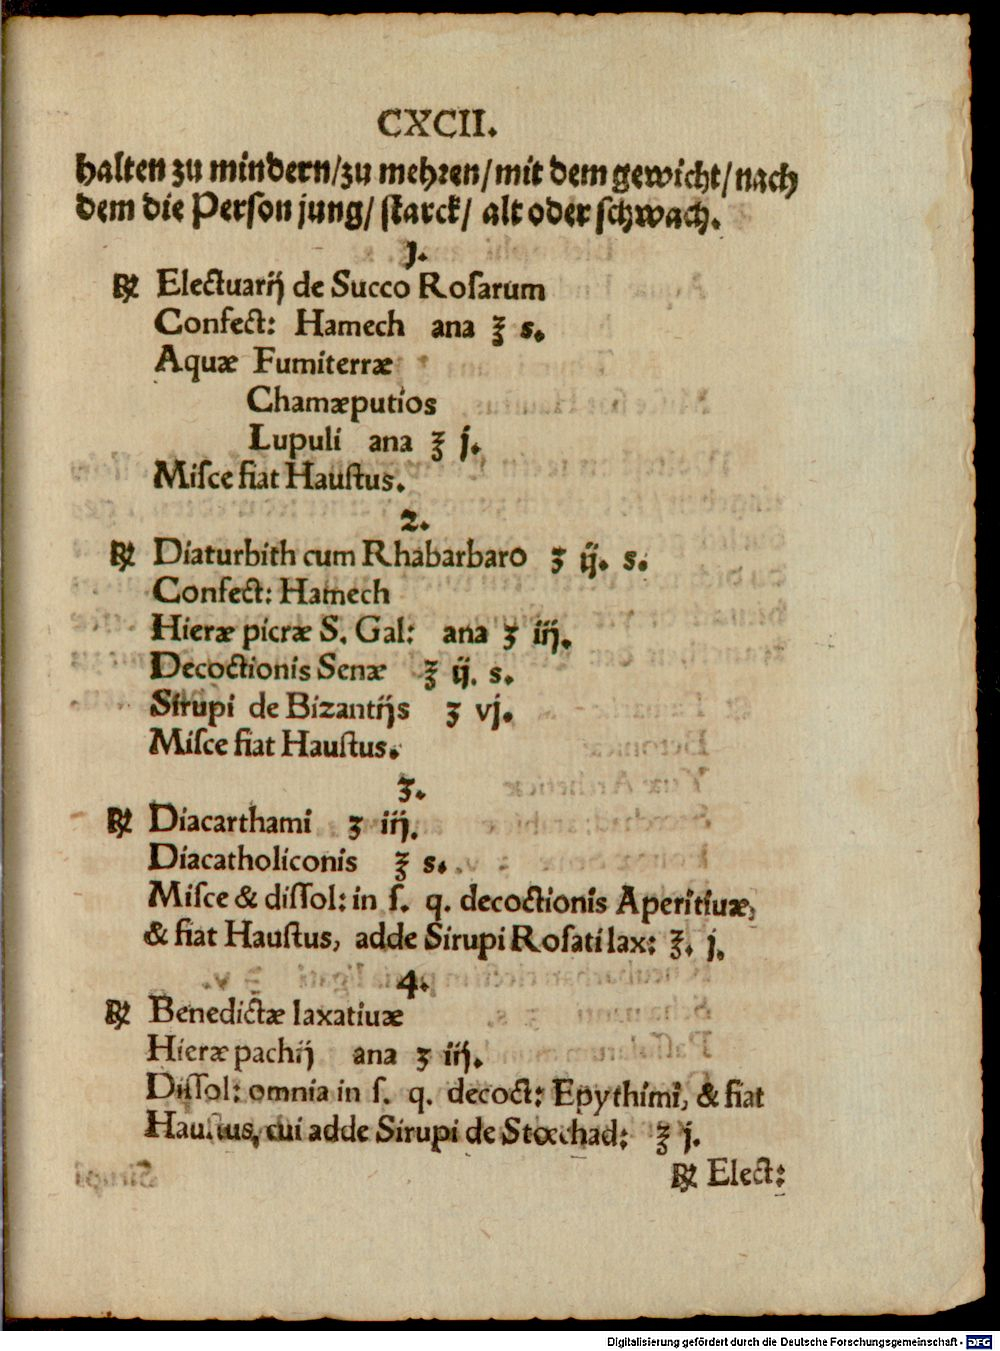 CXCII.
halten zu mindern/zu mehren/mit dem gewicht/nach
dem die Person jung/ starck/ alt oder schwach.
1.
℞ Electuarij de Succo Rosarum
Confect: Hamech ana ℥ s.
Aquæ Fumiterræ
Chamæputios
Lupuli ana ℥ j.
Misce fiat Haustus.
2.
℞ Diaturbith cum Rhabarbaro ʒ ij. s.
Confect: Hamech
Hieræ picræ S. Gal: ana ʒ iij.
Decoctionis Senæ ℥ ij. s.
Sirupi de Bizantijs ʒ vj.
Misce fiat Haustus.
3.
℞ Diacarthami ʒ iij.
Diacatholiconis ℥ s.
Misce & dissol: in s. q. decoctionis Aperitiuæ,
& fiat Haustus, adde Sirupi Rosati lax: ℥. j.
4.
℞ Benedictæ laxatiuæ
Hieræ pachij ana ʒ iij.
Dissol: omnia in s. q. decoct: Epythimi, & fiat
Haustus, cui adde Sirupi de Stœchad: ℥ j.
℞ Elect:
Digitalisierung gefördert durch die Deutsche Forschungsgemeinschaft - DFG